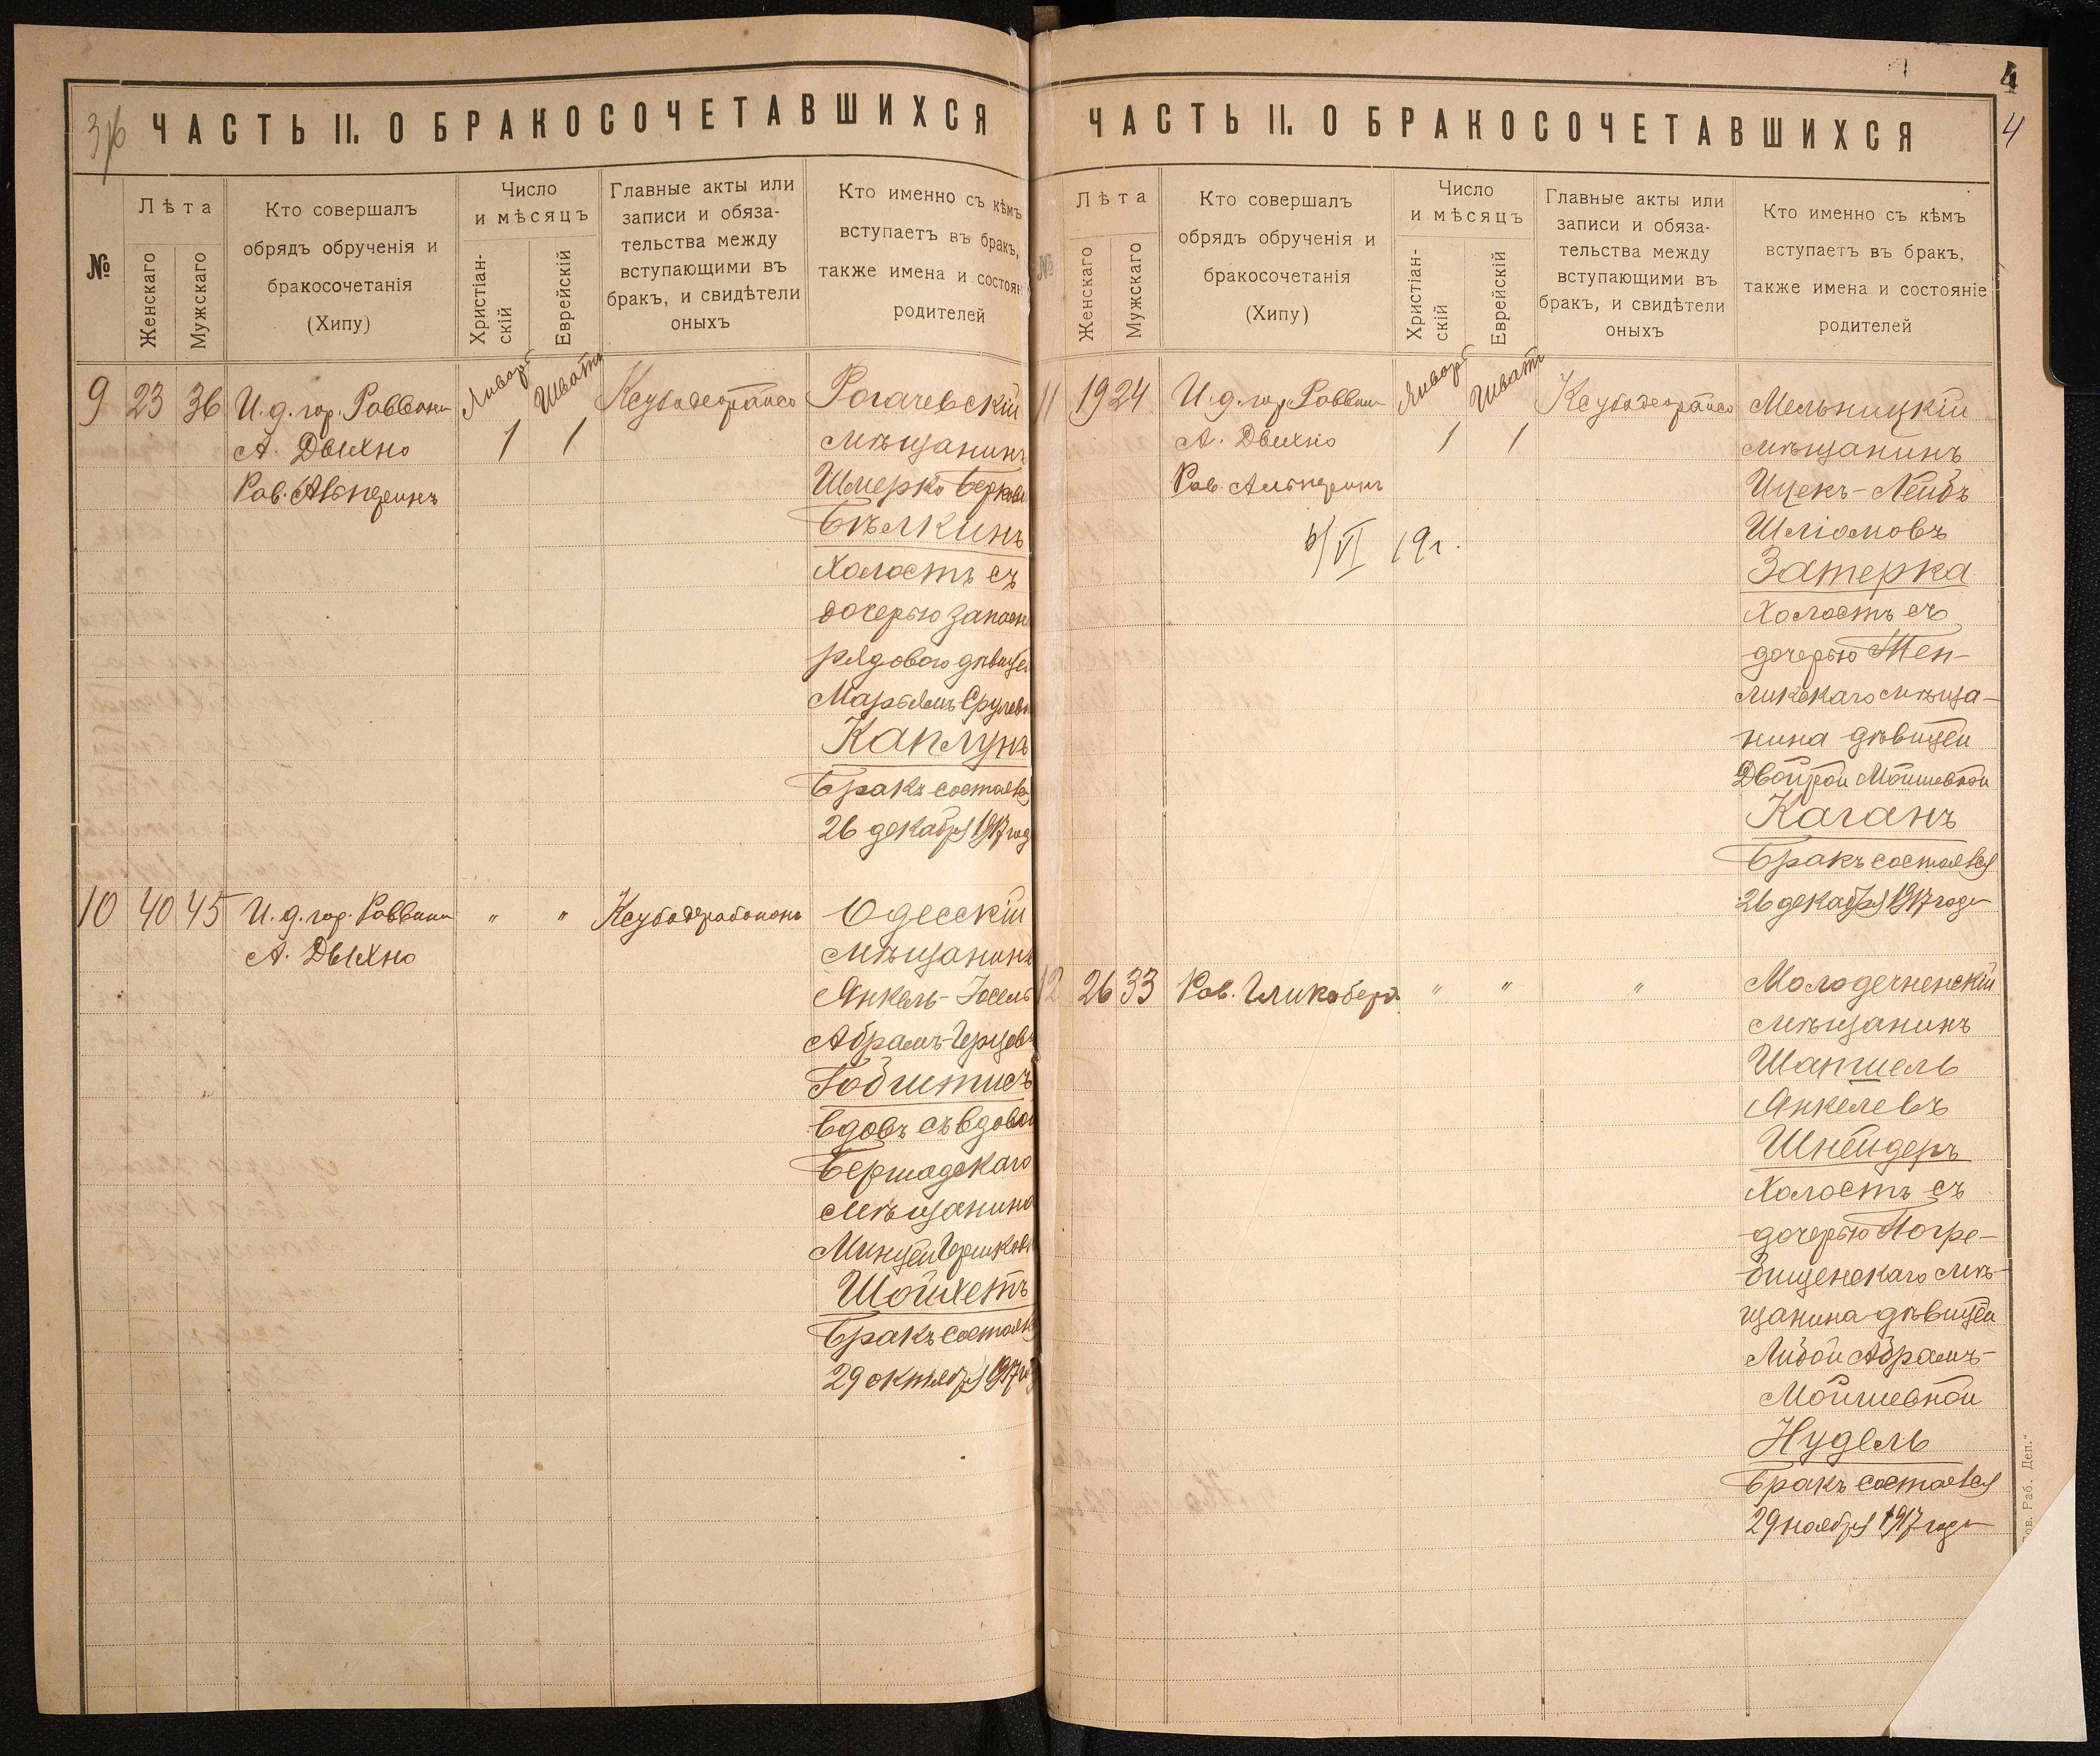 ЧАСТЬ II. О БРАКОСОЧЕТАВШИХСЯ
№
Лѣта
Женскаго
Мужскаго
Кто совершалъ
обрядъ обрученія и
бракосочетанія
(Хипу)
Число
и мѣсяцъ
Христіан-
скій
Еврейскій
Главные акты или
записи и обяза-
тельства между
вступающими въ
бракъ, и свидѣтели
оныхъ
Кто именно съ кѣмъ
вступаетъ въ бракъ,
также имена и состоян
родителей
9 23 36
И. д. гор. Раввина
А. Дыхно
Рав. Альперинъ
Январь
1
Шватъ
1
Рогачевскій
мѣщанинъ
Шмерко Берков
Бѣлкинъ
холостъ съ
дочерью запасн
рядового дѣвицей
Марьямъ Срулевн
Каплунъ
Бракъ состоялся
26 декабря 1917 год
10 40 45
И. д. гор. Раввина
А. Дыхно
" "
Одесскій
мѣщанинъ
Янкель-Іосель
Абрамъ-Герцовъ
Гобитисъ
вдовъ съ вдовой
Бершадскаго
мѣщанина
Минцей Гершков
Шойхетъ
Бракъ состоялся
29 октября 1917 го
4
4
ЧАСТЬ II. О БРАКОСОЧЕТАВШИХСЯ
№
Лѣта
Женскаго
Мужскаго
Кто совершалъ
обрядъ обрученія и
бракосочетанія
(Хипу)
Число
и мѣсяцъ
Христіан-
скій
Еврейскій
Главные акты или
записи и обяза-
тельства между
вступающими въ
бракъ, и свидѣтели
оныхъ
Кто именно съ кѣмъ
вступаетъ въ бракъ,
также имена и состояніе
родителей
11 19 24
И. д. гор. Раввина
А. Дыхно
Рав. Альперинъ
VI 19 г.
Январь
1
Шватъ
1
Мельницкій
мѣщанинъ
Ицекъ-Лейбъ
Шліомовъ
Затерка
холостъ съ
дочерью Теп-
ликскаго мѣща-
нина дѣвицей
Двойрой Мошевной
Каганъ
Бракъ состоялся
26 декабря 1917 года
12 26 33
Рав. Гликсбергъ
" " "
Молодечненскій
мѣщанинъ
Шапшель
Янкелевъ
Шнейдеръ
холостъ съ
дочерью Погре-
бищенскаго мѣ-
щанина дѣвицей
Либой Абрамъ-
Мойшевной
Нудель
Бракъ состоялся
29 ноября 1917 года
Раб. Деп."